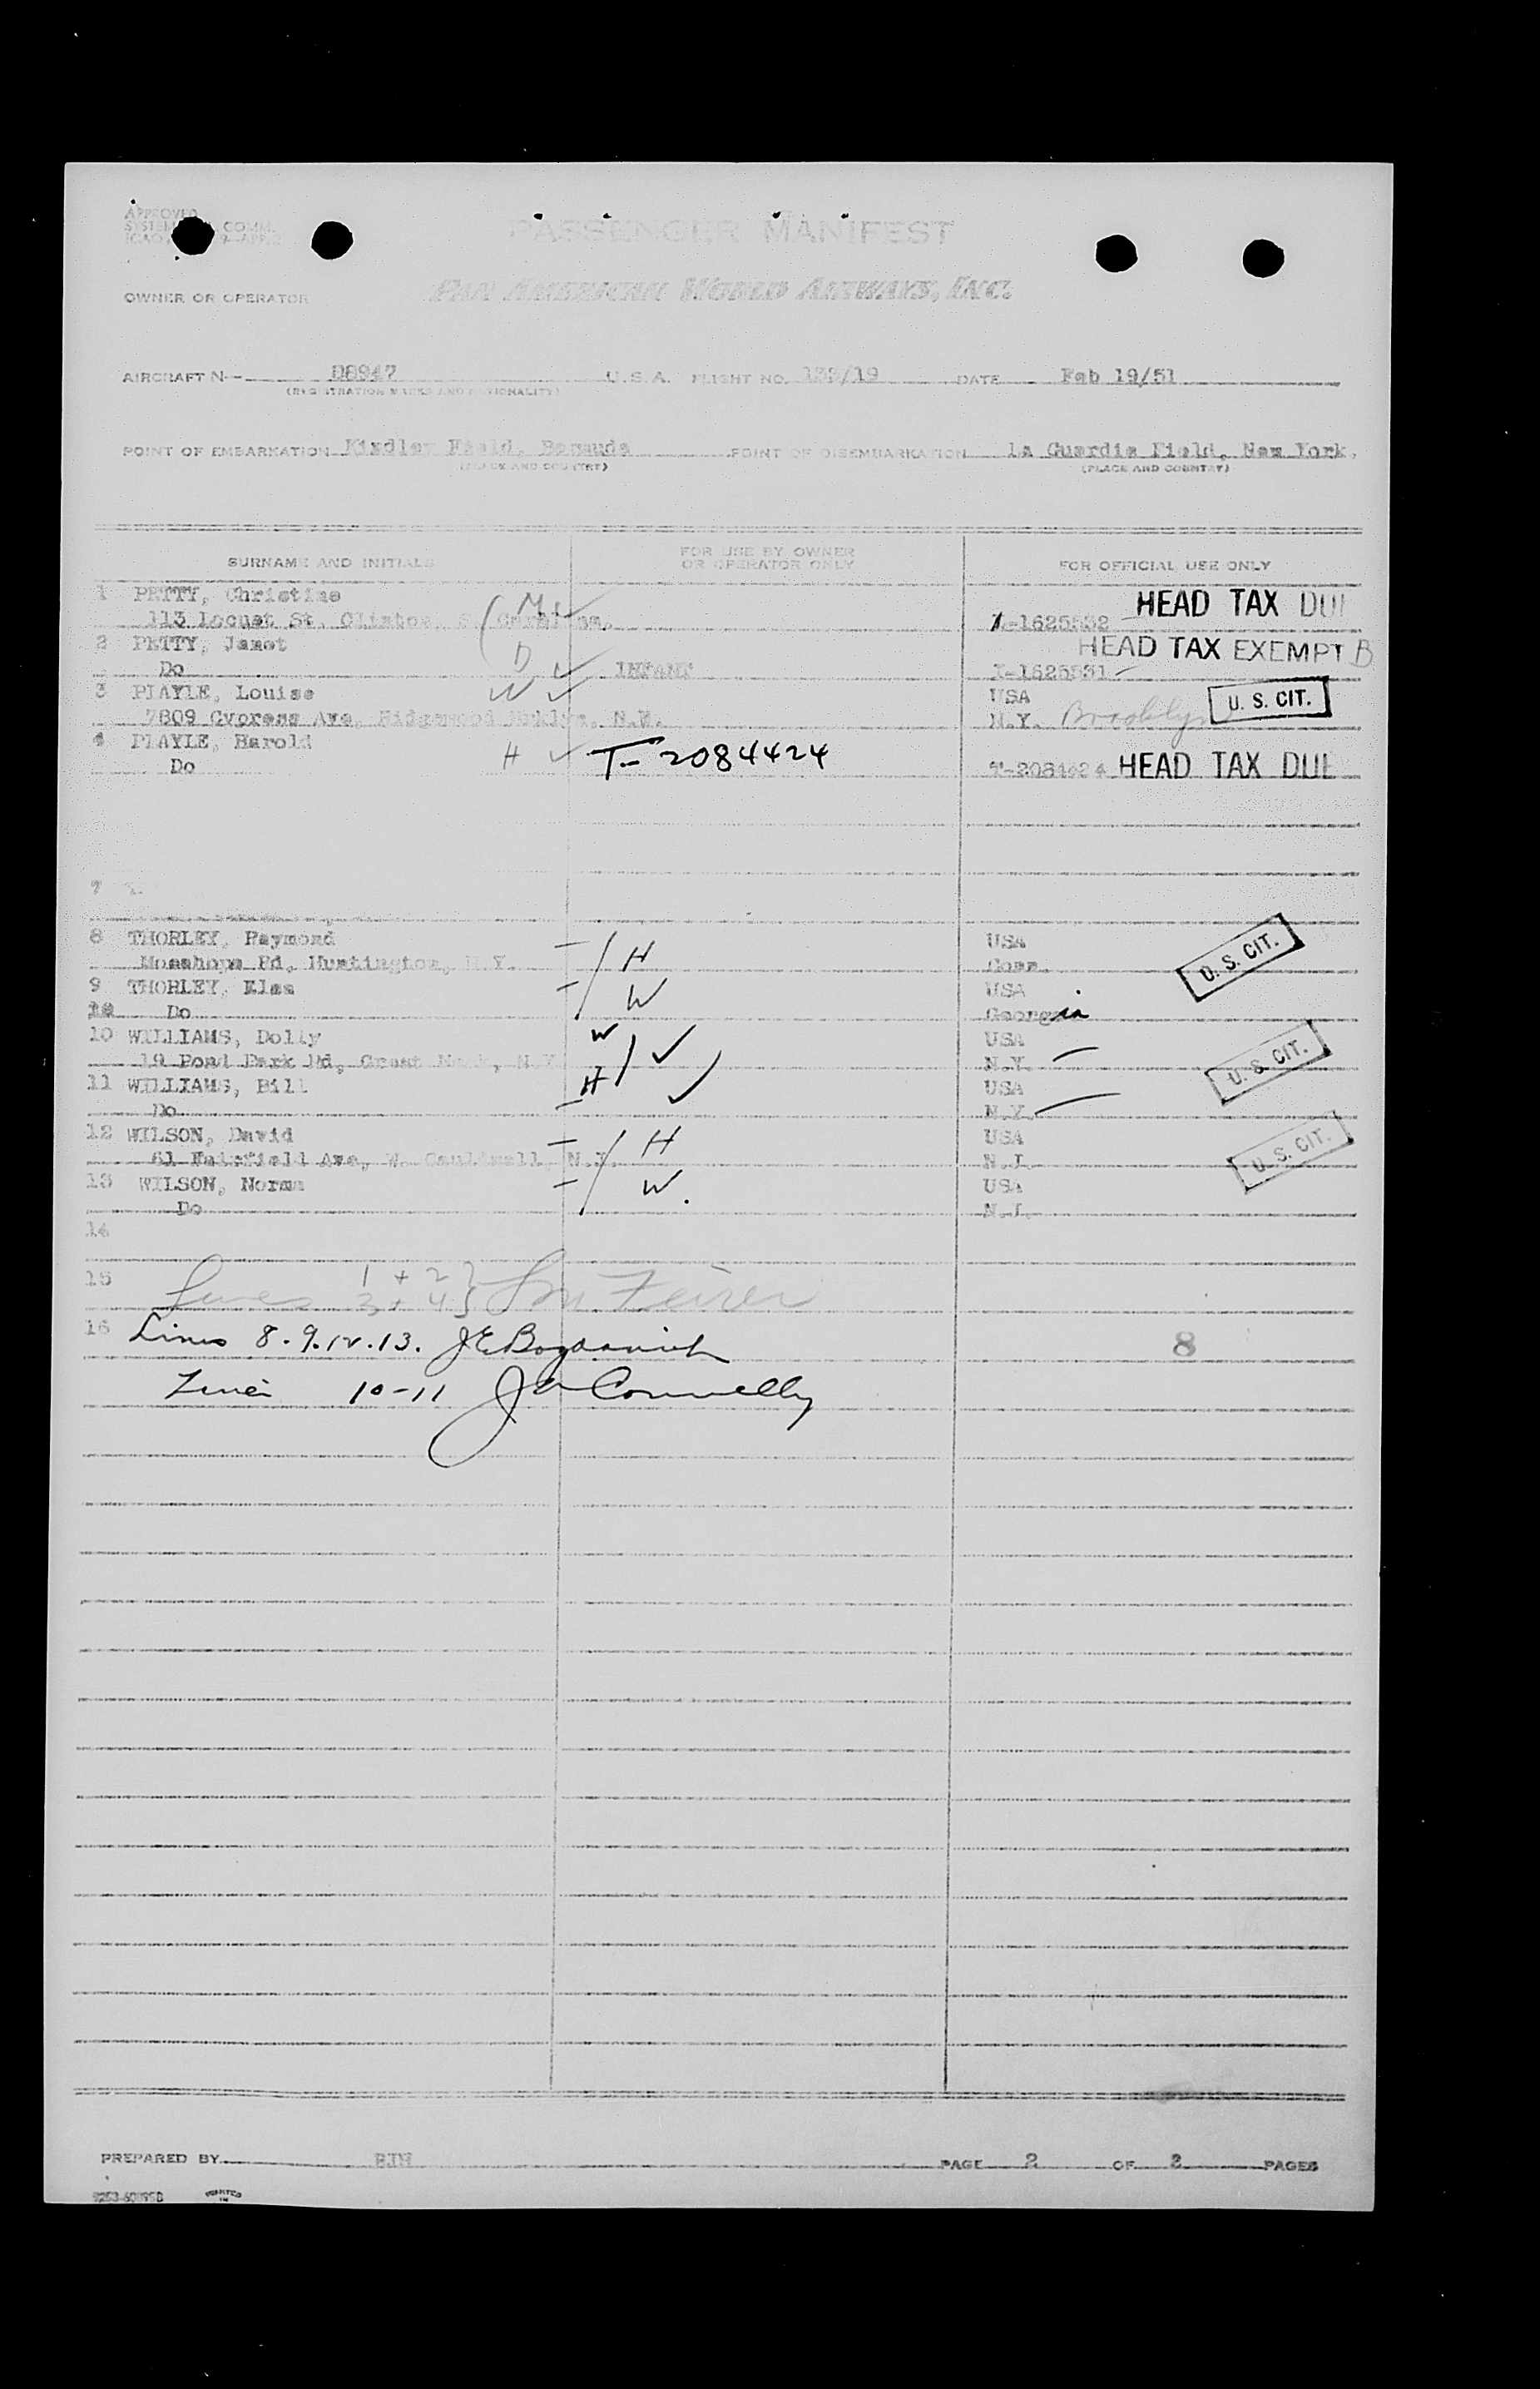 APPROVED
PASSENGER MANIFEST
OWNER OR OPERATOR PAN AMERICAN WORLD AIRWAYS, INC.
AIRCRAFT N- 88947 U.S.A. FLIGHT NO. /19 DATE Feb 19/51
(REGISTRATION MARKS AND NATIONALITY)
POINT OF EMBARKATION Kindley Field, Bermuda POINT OF DISEMBARKATION la Guardia Field, New York,
(PLACE AND COUNTRY) (PLACE AND COUNTRY)
SURNAME AND INITIALS FOR USE BY OWNER OR OPERATOR ONLY FOR OFFICIAL USE ONLY
1 PETTY, Christine M HEAD TAX DUE
113 Locust St. Clinton, S. Carolina. -1625532
2 PETTY, Janet D HEAD TAX EXEMPT B
Do INFANT -1625531
3 PLAYLE, Louise W USA U. S. CIT.
7809 Cypress Ave, Ridgewood N.Y. N.Y. Brooklyn
4 PLAYLE, Harold H T-2084424
Do T-2084424 HEAD TAX DUE
7
8 THORLEY, Raymond H USA U. S. CIT.
Rd, Huntington, N.Y. Conn.
9 THORLEY, Elsa W USA
10 Do Georgia
10 WILLIAMS, Dolly W USA
19 Pond Park Rd, Great Neck, N.Y. N.Y. U. S. CIT.
11 WILLIAMS, Bill H USA
Do N.Y.
12 WILSON, David H USA U. S. CIT.
61 Fairfield Ave, W. N.J. N.J.
13 WILSON, Norma W USA
Do N.J.
14
15 Lines 1 + 2 }
3 + 4 }
16 Lines 8. 9. 12. 13. J E Bogdanich 8
Lines 10-11 J Connelly
PREPARED BY PAGE 2 OF 2 PAGES
PRINTED IN